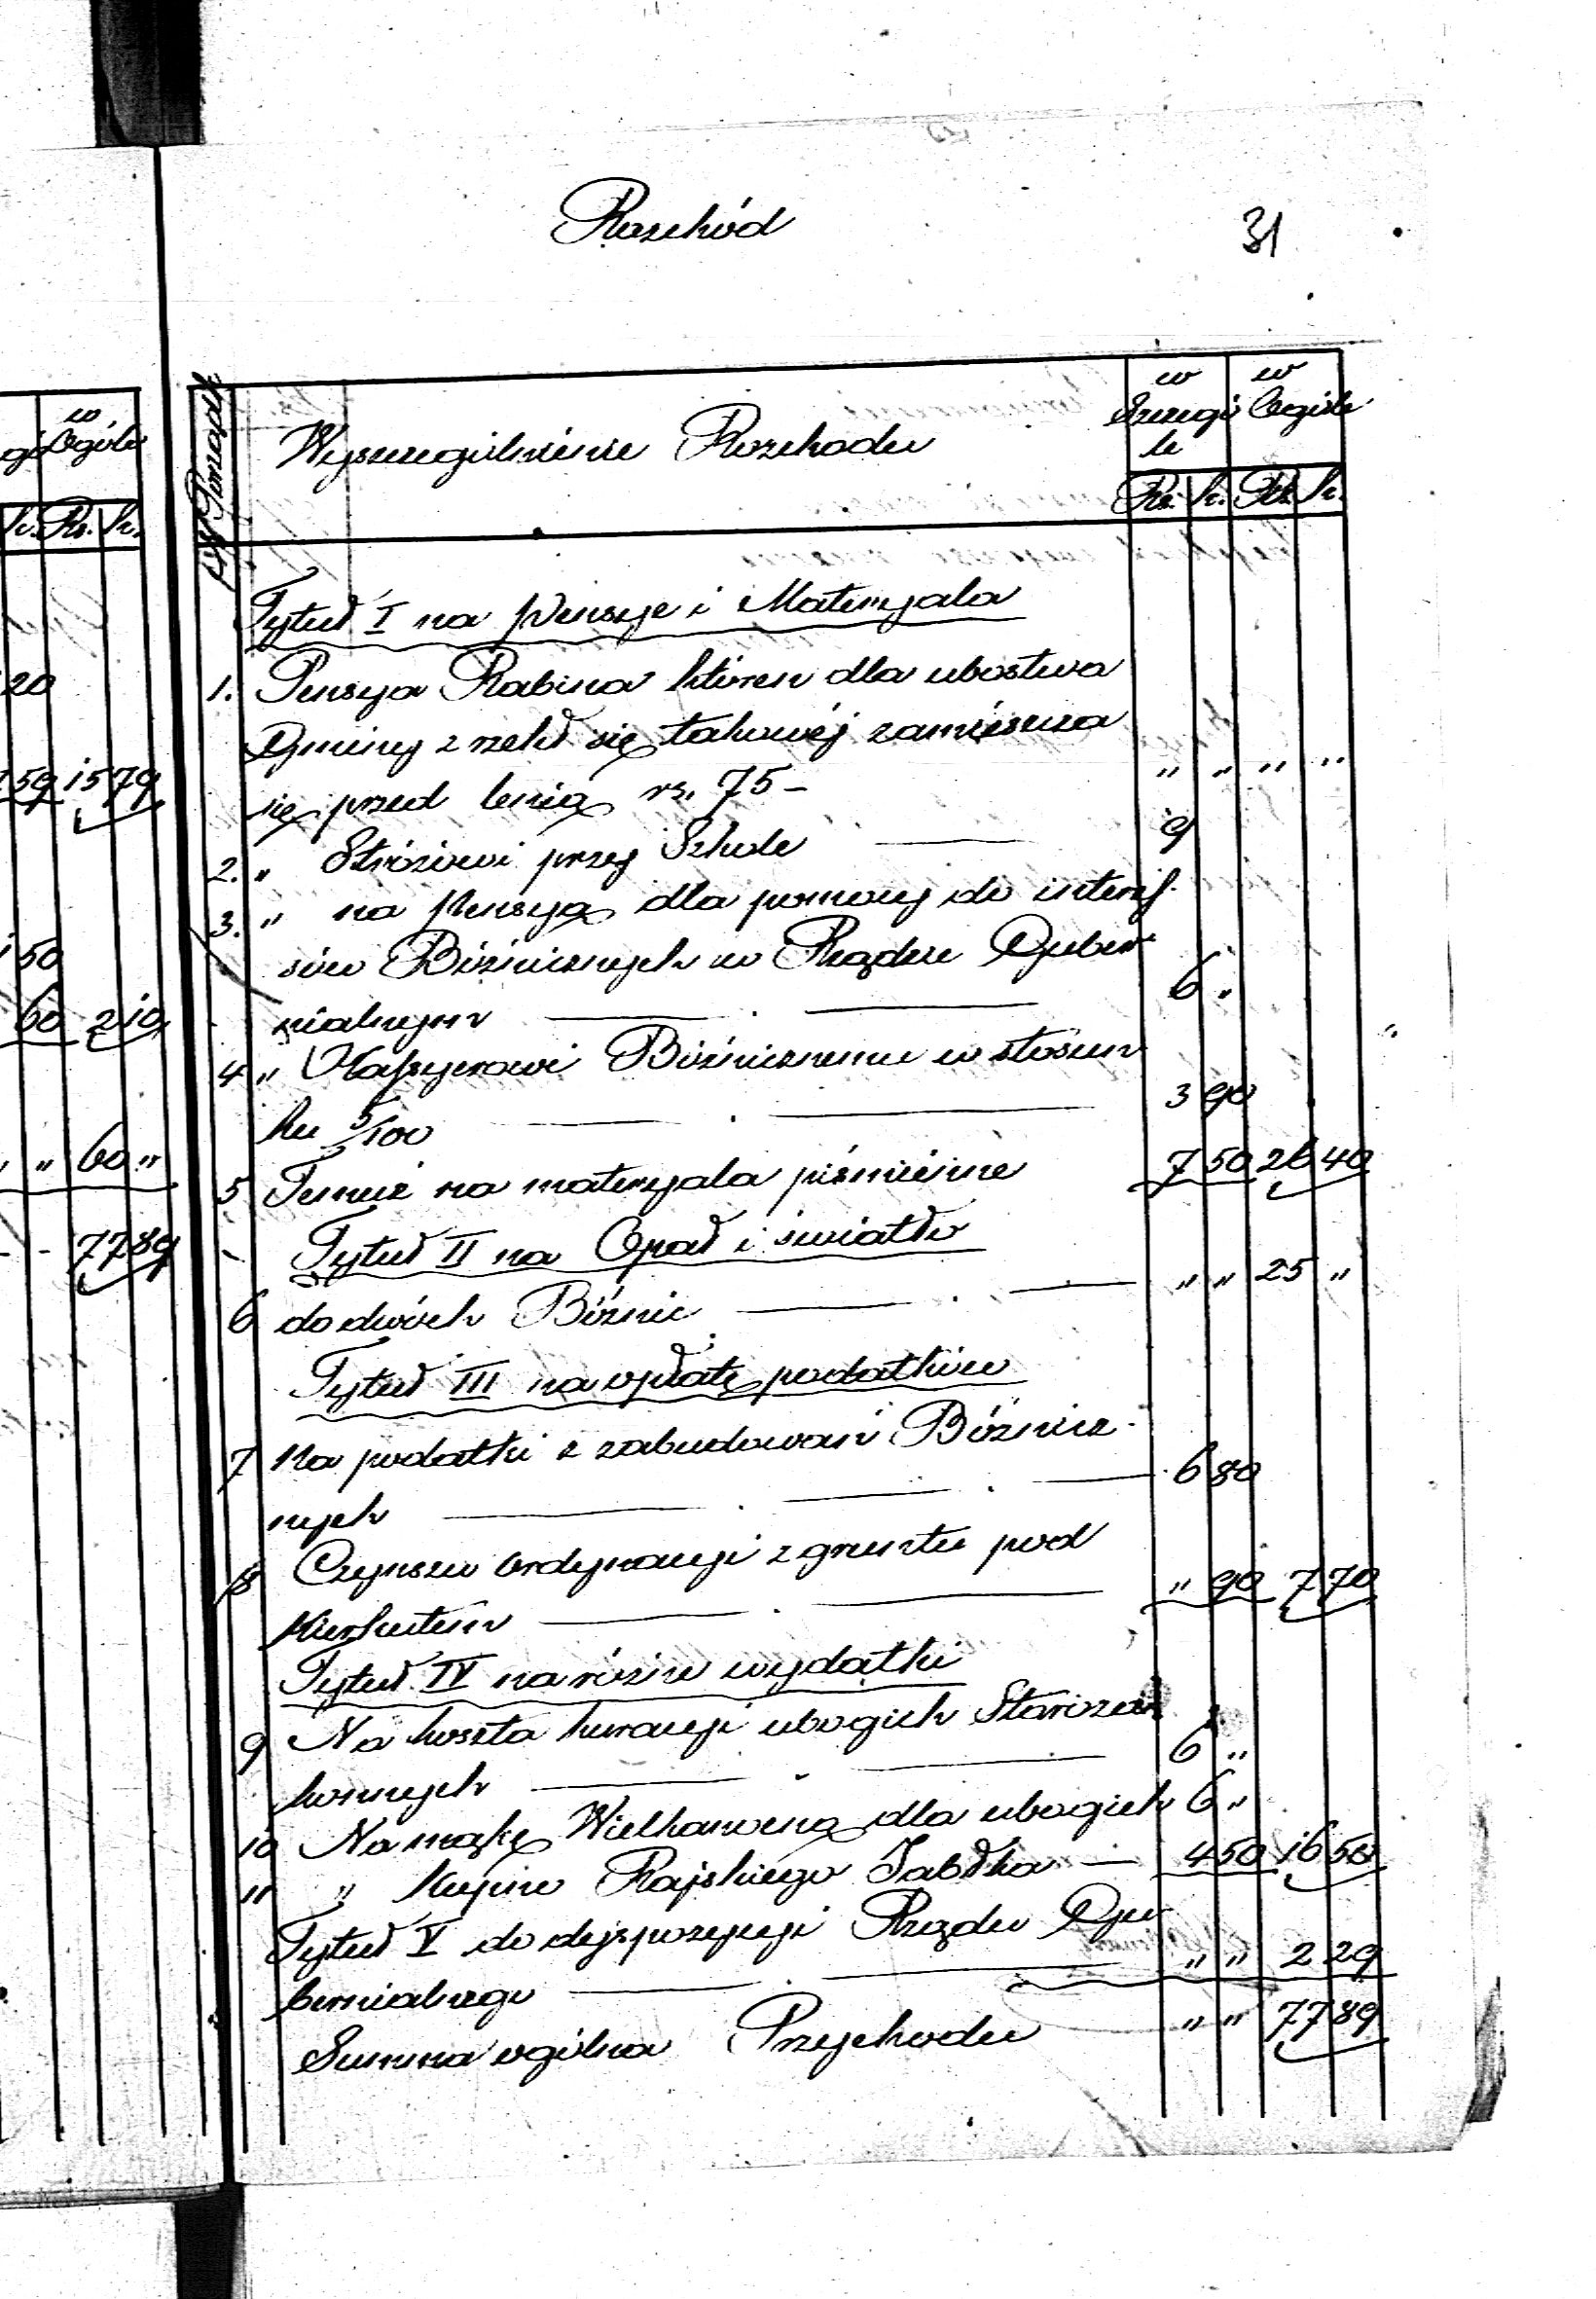 Rozchód
31
w Ogóle
Rs. k.
20
59 15 79
50
60 2 10
" " 60 "
- - 77 89
Porządk
Wyszczególnienie Rozchodu
w Szczegó
le
w Ogóle
Rs. k. Rs. k.
Tytuł I na Pensye i Materyała
1. Pensya Rabina któren dla ubostwa
Gminy zrzekł się takowéj zamieszcza
się przed lenią rs. 75 - " " " "
2. " Stróżowi przy Szkole 9
3. " na Pensyą dla pomocy do interes
sów Bóżnicznych w Rządzie Guber
nialnym 6 "
4 " Kassyerowi Bóżnicznemu w stosun
ku 5/100 3 90
5 Temuż na materyała piśmienne 7 50 26 40
Tytuł II na Opał i światło
6 do dwóch Bóżnic " " 25 "
Tytuł III na opłatę podatków
7 Na podatki z zabudowań Bóżnicz-
nych 6 80
8 Czynszu Ordynacyi z gruntu pod
Kierkutem " 90 7 70
Tytuł IV na różne wydatki
9 Na koszta kuracyi ubogich Starozak
konnych 6 "
10 Na mąkę Wielkanocną dla ubogich 6 "
11 " Kupno Rajskiego Jabłka 4 50 16 50
Tytuł V do dyspozycyi Rządu Gu
bernialnego " " 2 29
Summa ogólna Przychodu " " 77 89